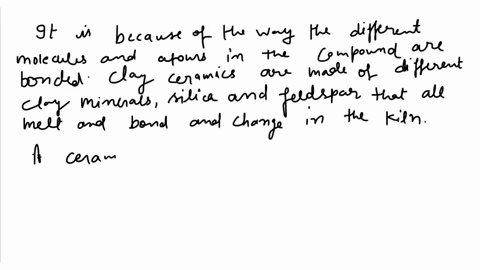 It is because of the way the different
molecules and atoms in the compound are
bonded. Clay ceramics are made of different
clay minerals, silica and feldspar that all
melt and bond and change in the kiln.
A ceram